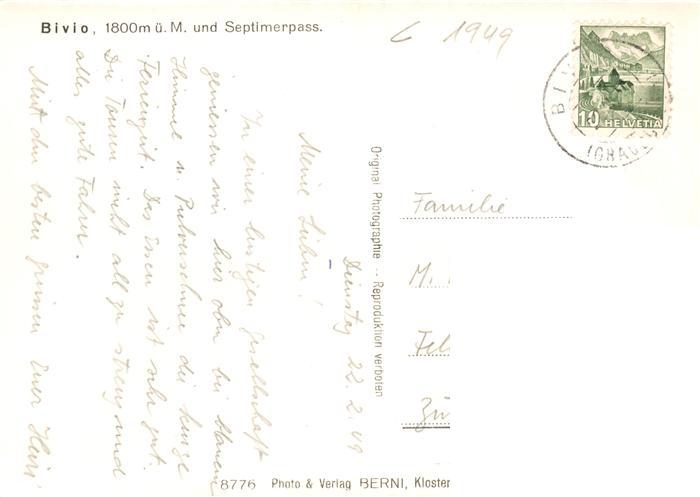 Bivio, 1800m ü. M. und Septimerpass.
c 1949
10 HELVETIA
BIV
(GRAU
Dienstag 22.2.49
Meine Lieben!
In einer lustigen Gesellschaft
geniessen wir hier oben bei blauem
Himmel u. Pulverschnee die kurze
Ferienzeit. Das Essen ist sehr gut.
Die Touren nicht all zu streng und
alles gute Fahrer.
Mit den besten Grüssen Euer Heiri
Original Photographie -- Reproduktion verboten
Familie
M.
Fel
Zü
8776 Photo & Verlag BERNI, Kloster